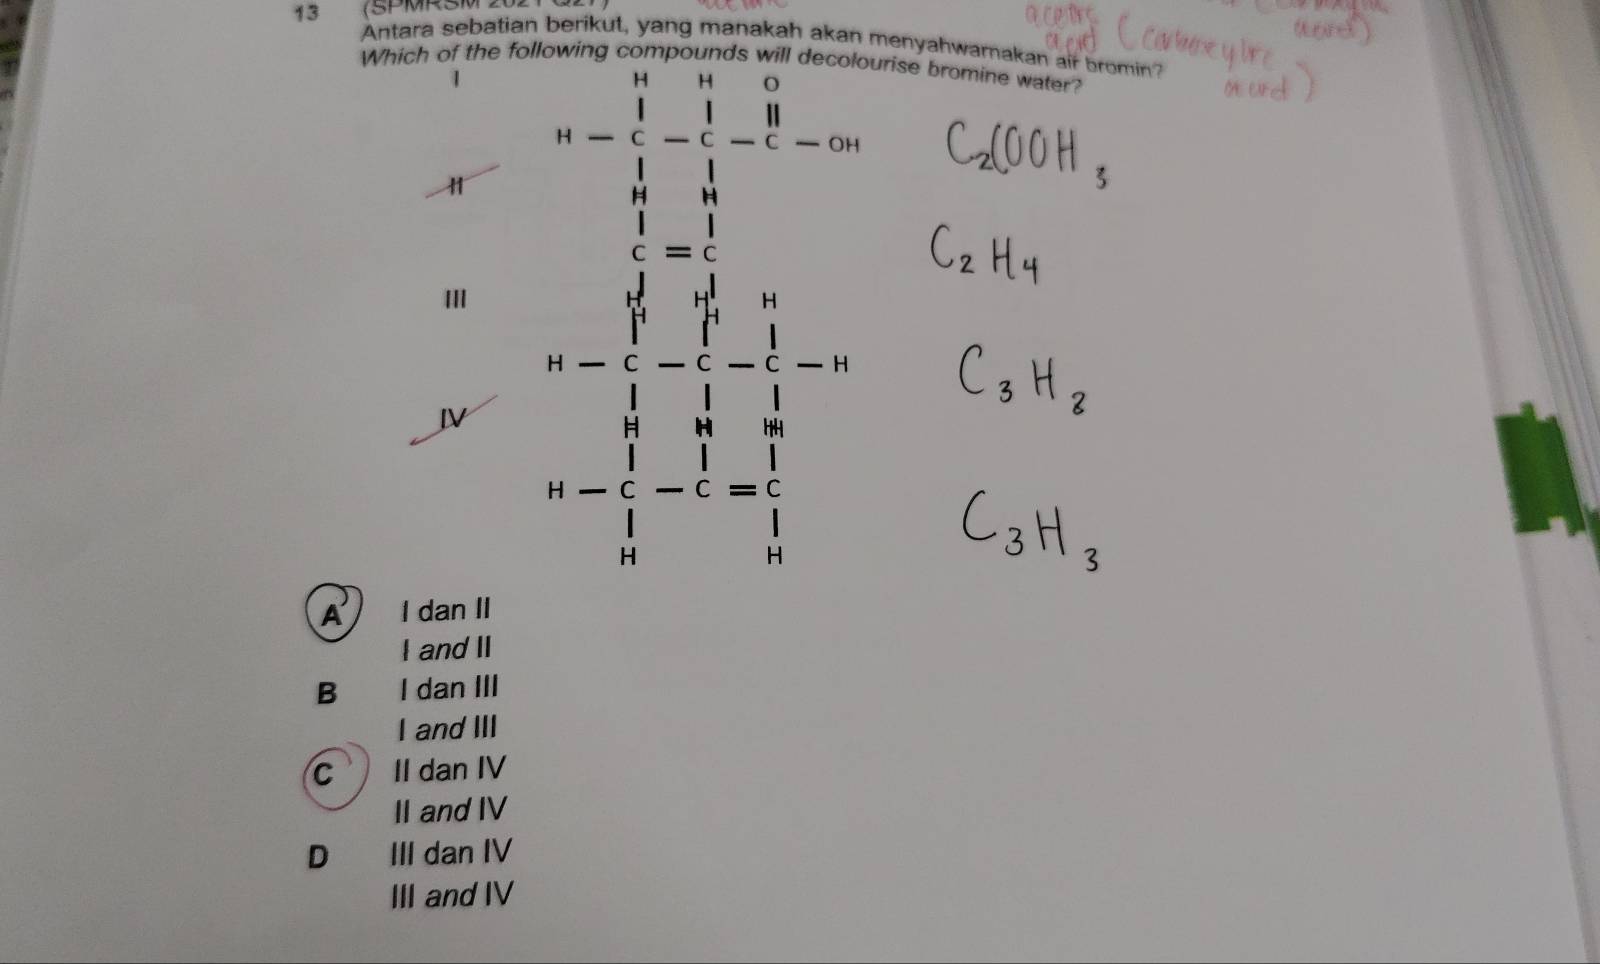 13 (SPMRSM 2021 Q27)
Antara sebatian berikut, yang manakah akan menyahwarnakan air bromin?
Which of the following compounds will decolourise bromine water?
acid (carboxylic
I
H H O
H — C — C — C — OH
C₂COOH₃
II
H H
C = C
C₂H₄
H H
III
H H H
H — C — C — C — H
C₃H₈
H H H
IV
H H H
H — C — C = C
C₃H₃
H H
A I dan II
I and II
B I dan III
I and III
C II dan IV
II and IV
D III dan IV
III and IV